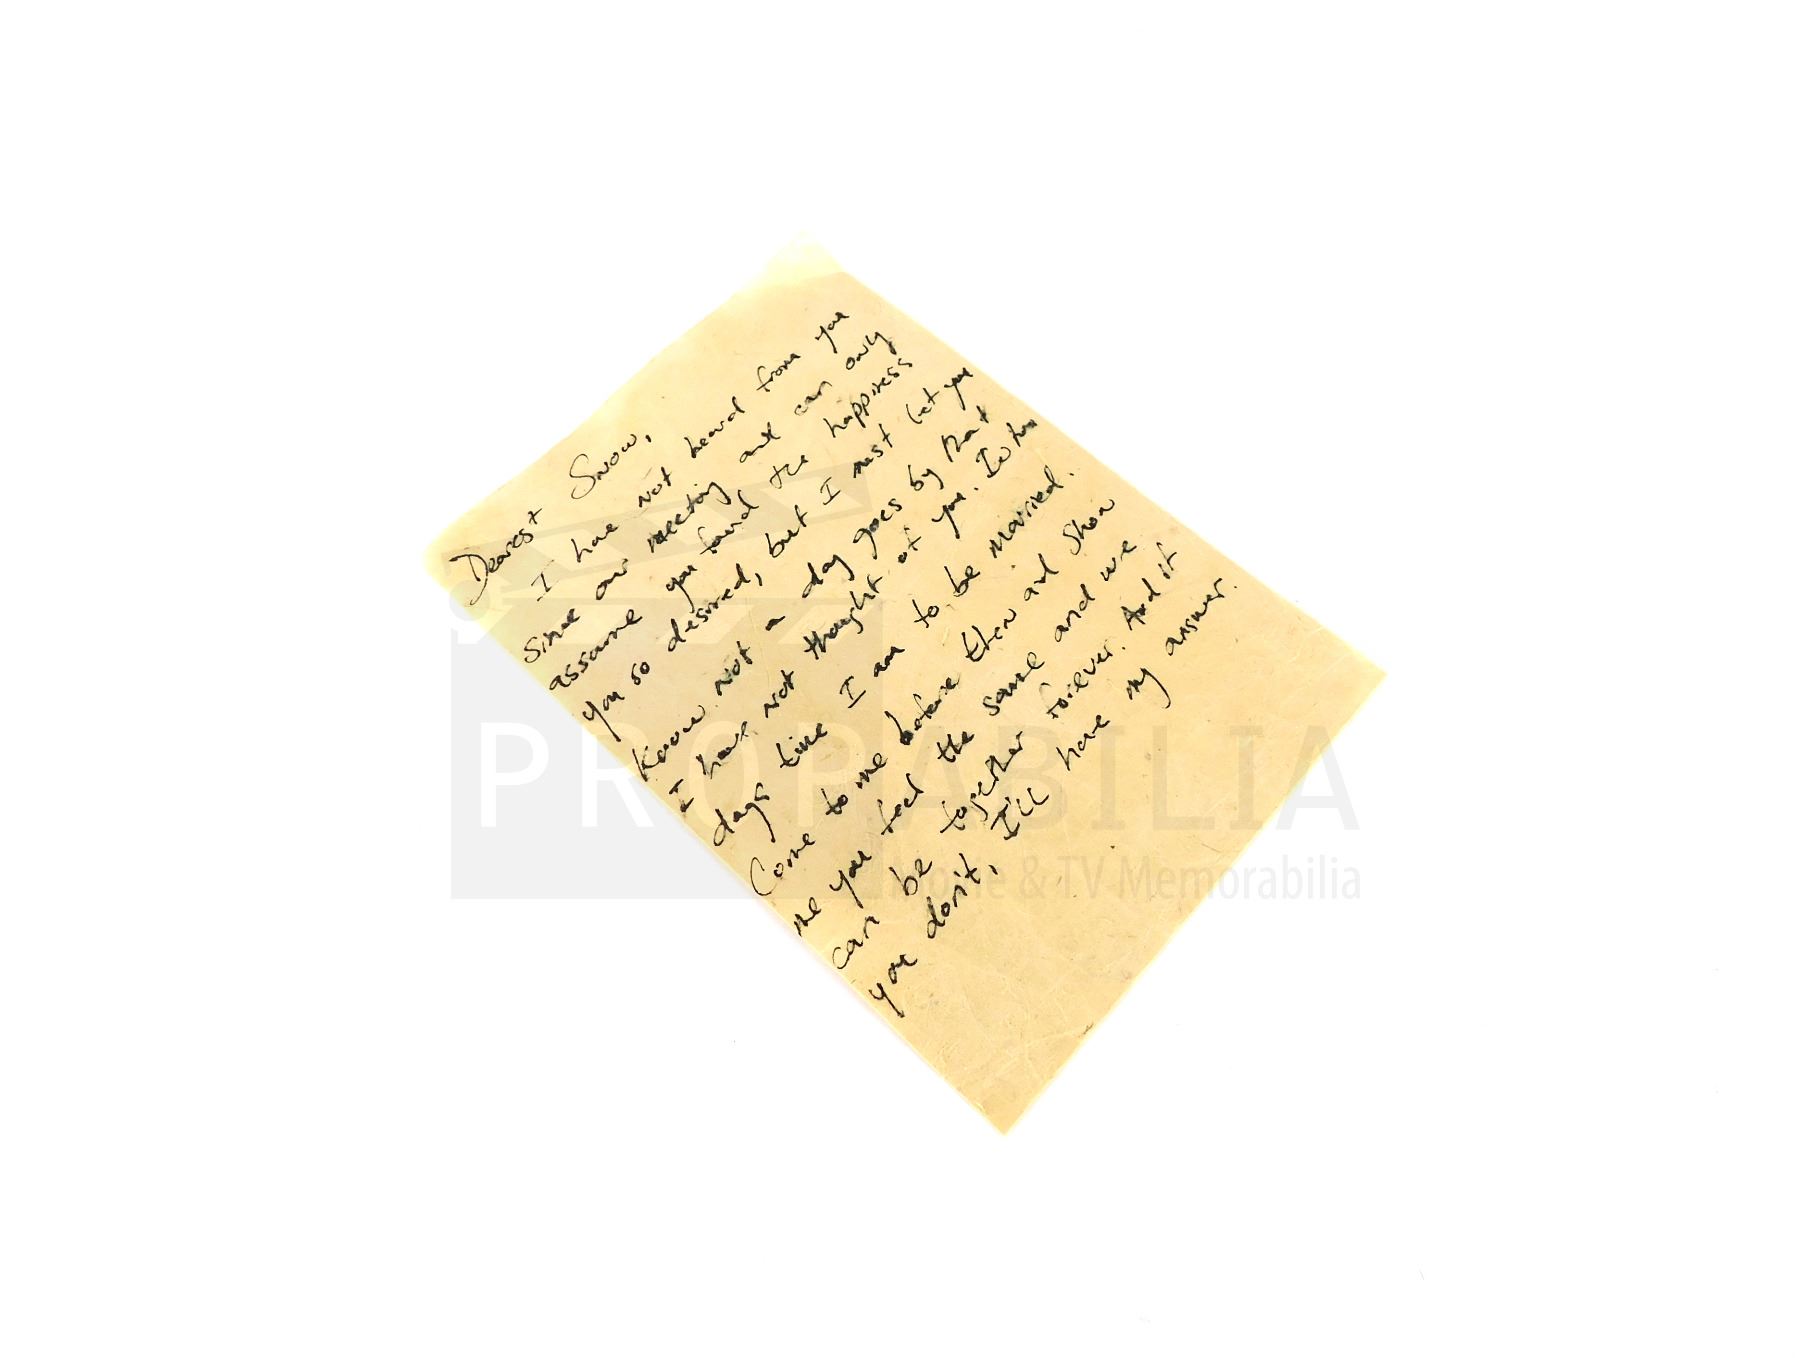 Dearest Snow,
I have not heard from you
since our meeting and can only
assume you found the happiness
you so desired, but I must let you
know not a day goes by that
I have not thought of you. In two
days time I am to be married.
Come to me before then and show
me you feel the same and we
can be together forever. And if
you don't, I'll have my answer.
PROPABILIA
Movie & TV Memorabilia